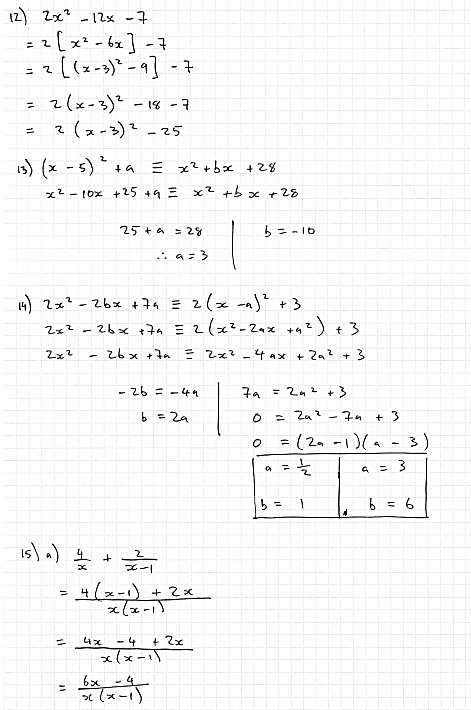 12) 2x² - 12x - 7
= 2[x² - 6x] - 7
= 2[(x-3)² - 9] - 7
= 2(x-3)² - 18 - 7
= 2(x-3)² - 25
13) (x - 5)² + a ≡ x² + bx + 28
x² - 10x + 25 + a ≡ x² + bx + 28
25 + a = 28 | b = -10
∴ a = 3
14) 2x² - 2bx + 7a ≡ 2(x - a)² + 3
2x² - 2bx + 7a ≡ 2(x² - 2ax + a²) + 3
2x² - 2bx + 7a ≡ 2x² - 4ax + 2a² + 3
-2b = -4a | 7a = 2a² + 3
b = 2a | 0 = 2a² - 7a + 3
0 = (2a - 1)(a - 3)
a = 1/2 | a = 3
b = 1 | b = 6
15) a) 4/x + 2/(x-1)
= (4(x-1) + 2x)/(x(x-1))
= (4x - 4 + 2x)/(x(x-1))
= (6x - 4)/(x(x-1))